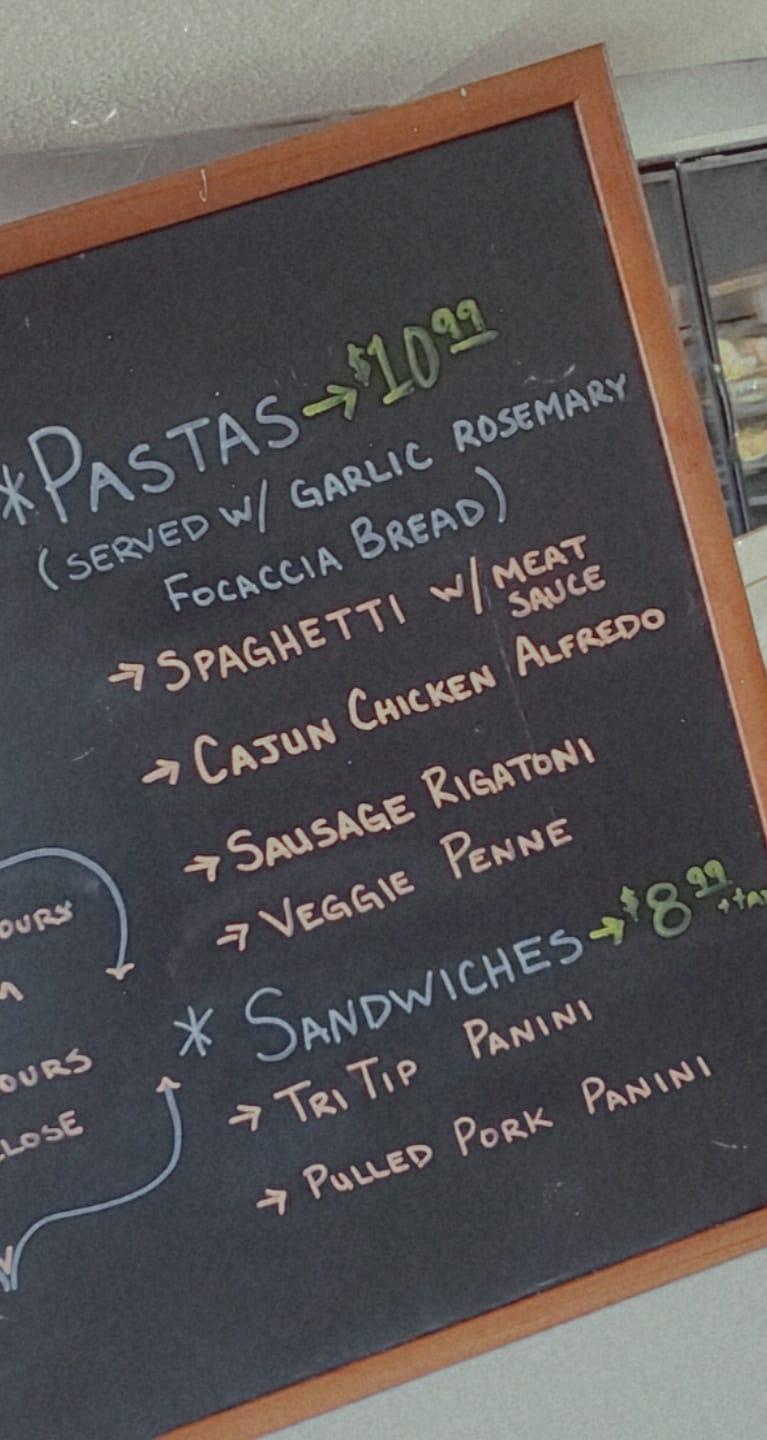 *PASTAS→$10.99
(SERVED W/ GARLIC ROSEMARY
FOCACCIA BREAD)
→SPAGHETTI W/ MEAT
SAUCE
→CAJUN CHICKEN ALFREDO
→SAUSAGE RIGATONI
→VEGGIE PENNE
* SANDWICHES→$8.99
→TRI TIP PANINI
→PULLED PORK PANINI